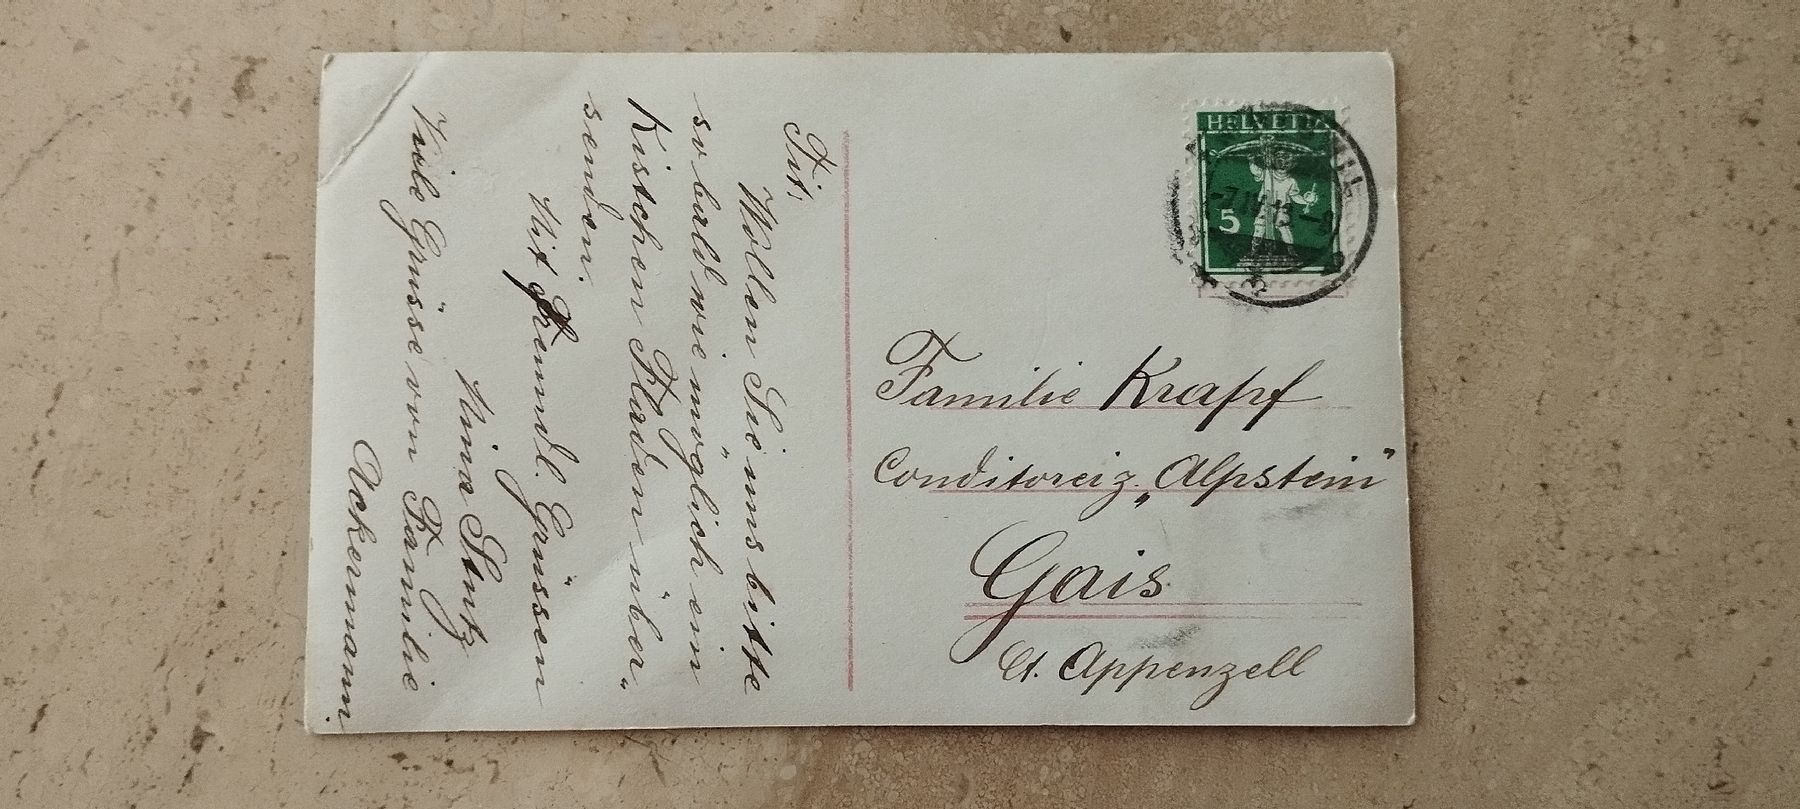 Tit.
Wollen Sie uns bitte
so bald wie möglich ein
Kistchen Fladen über„
senden.
Mit Freundl. Grüssen
Nina Stutz
Viele Grüsse von Familie
Ackermann.
HELVETIA
5
Familie Krapf
Conditorei z. „Alpstein"
Gais
Ct. Appenzell